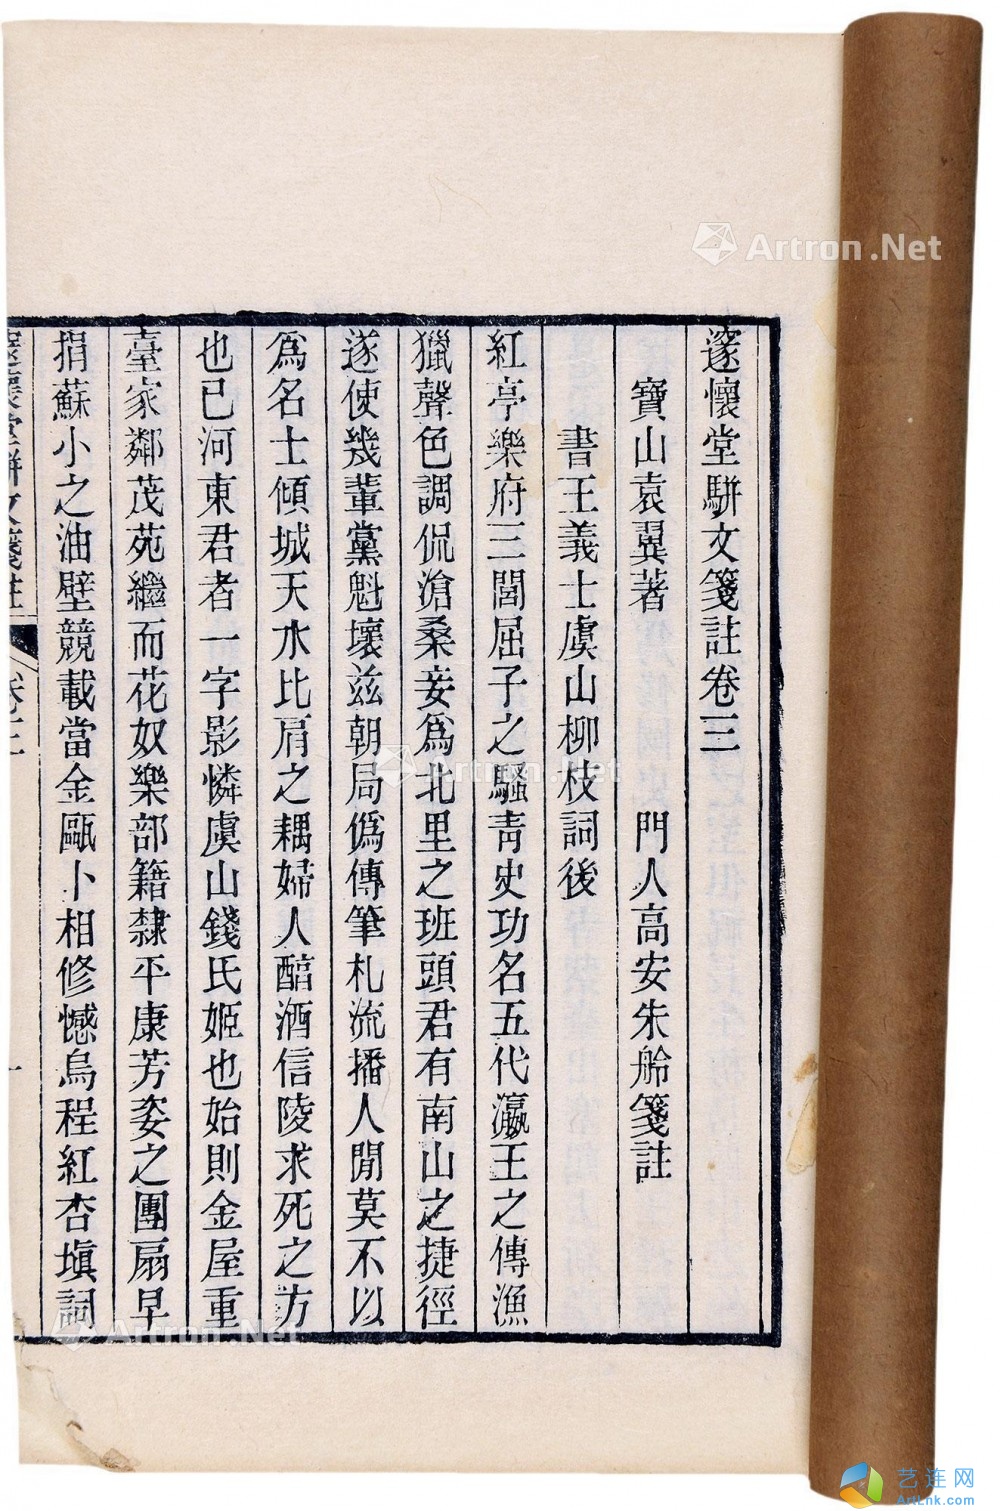 邃懷堂駢文箋註卷三
寶山袁翼著 門人高安朱舲箋註
書王義士虞山柳枝詞後
紅亭樂府三閭屈子之騷靑史功名五代瀛王之傳漁
獵聲色調侃滄桑妾爲北里之班頭君有南山之捷徑
遂使幾輩黨魁壞兹朝局僞傳筆札流播人閒莫不以
爲名士傾城天水比肩之耦婦人醇酒信陵求死之方
也已河東君者一字影憐虞山錢氏姬也始則金屋重
臺家鄰茂苑繼而花奴樂部籍隸平康芳姿之團扇早
捐蘇小之油壁競載當金甌卜相修憾烏程紅杏塡詞
邃懷堂駢文箋註 卷三 一
Artron.Net
Artron.Net
Artron.Net
艺连网
ArtLnk.com